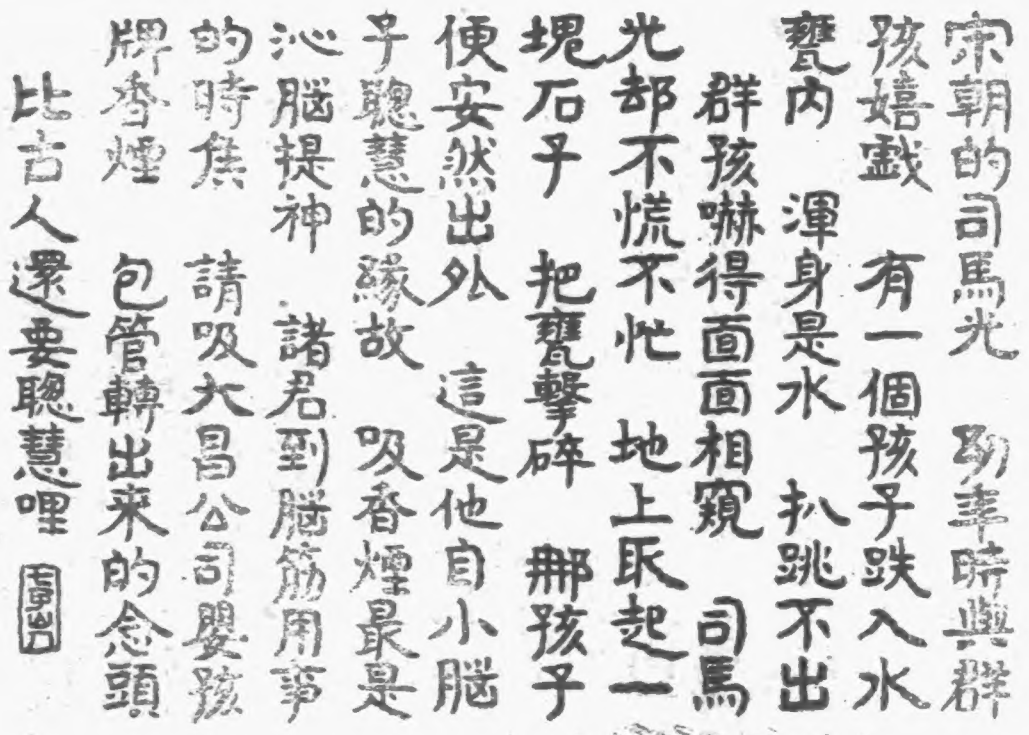 宋朝的司馬光 幼年時與群
孩嬉戲 有一個孩子跌入水
甕內 渾身是水 扒跳不出
群孩嚇得面面相窺 司馬
光却不慌不忙 地上取起一
塊石子 把甕擊碎 那孩子
便安然出外 這是他自小腦
子聰慧的緣故 吸香煙最是
沁腦提神 諸君到腦筋用事
的時焦 請吸大昌公司嬰孩
牌香煙 包管轉出來的念頭
比古人還要聰慧哩